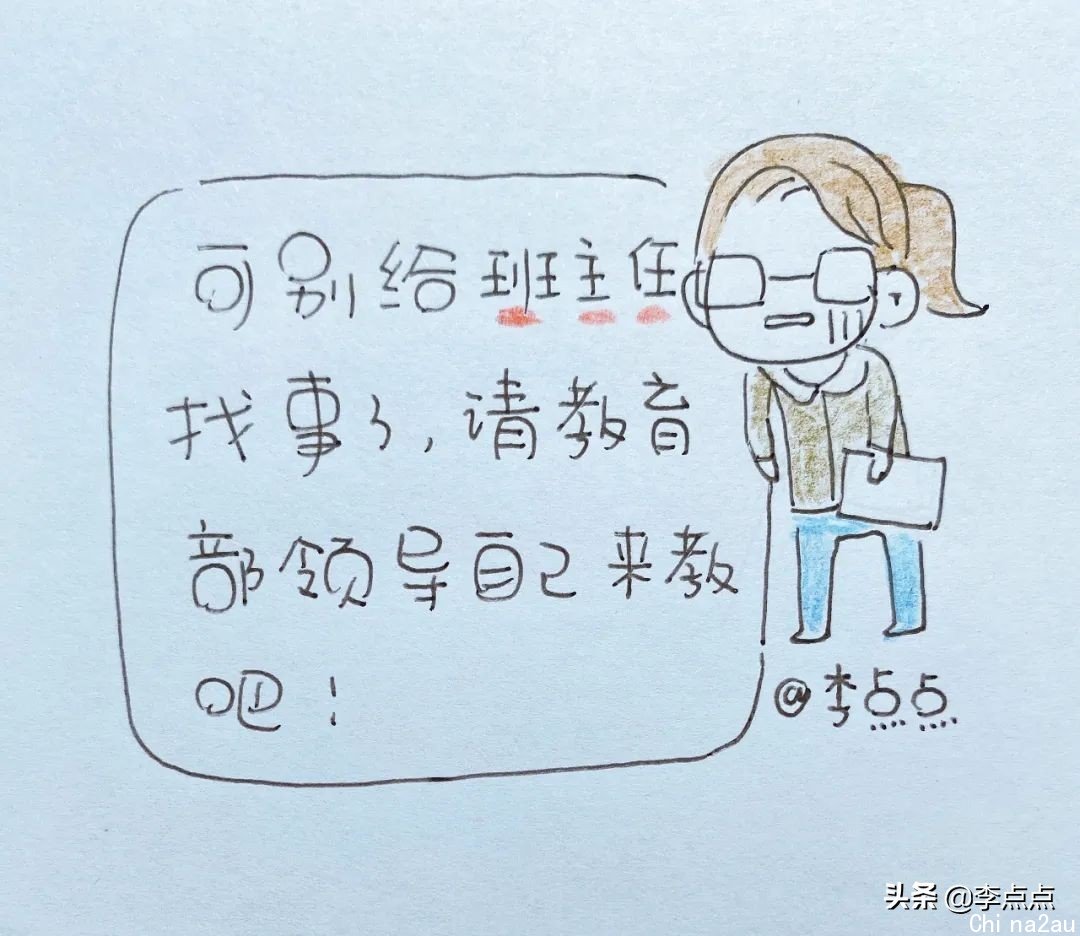 可别给班主任
找事了,请教育
部领导自己来教
吧!
@李点点
头条 @李点点
Chi na2au